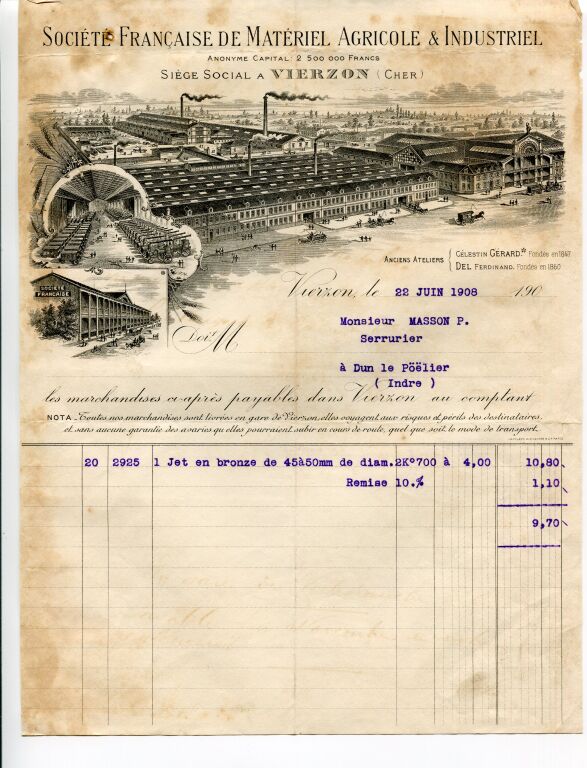 SOCIÉTÉ FRANÇAISE DE MATÉRIEL AGRICOLE & INDUSTRIEL
ANONYME CAPITAL: 2 500 000 FRANCS
SIÈGE SOCIAL A VIERZON (CHER)
ANCIENS ATELIERS { CÉLESTIN GÉRARD. Fondés en 1847
DEL FERDINAND. Fondés en 1860
SOCIÉTÉ
FRANÇAISE
Vierzon, le 22 JUIN 1908 190
Doit M
Monsieur MASSON P.
Serrurier
à Dun le Pöëlier
( Indre )
les marchandises ci-après payables dans Vierzon au comptant
NOTA_Toutes nos marchandises sont livrées en gare de Vierzon, elles voyagent aux risques et périls des destinataires,
et sans aucune garantie des avaries qu'elles pourraient subir en cours de route, quel que soit le mode de transport.
20 2925 1 Jet en bronze de 45à50mm de diam. 2K°700 à 4,00 10,80
Remise 10.% 1,10
9,70